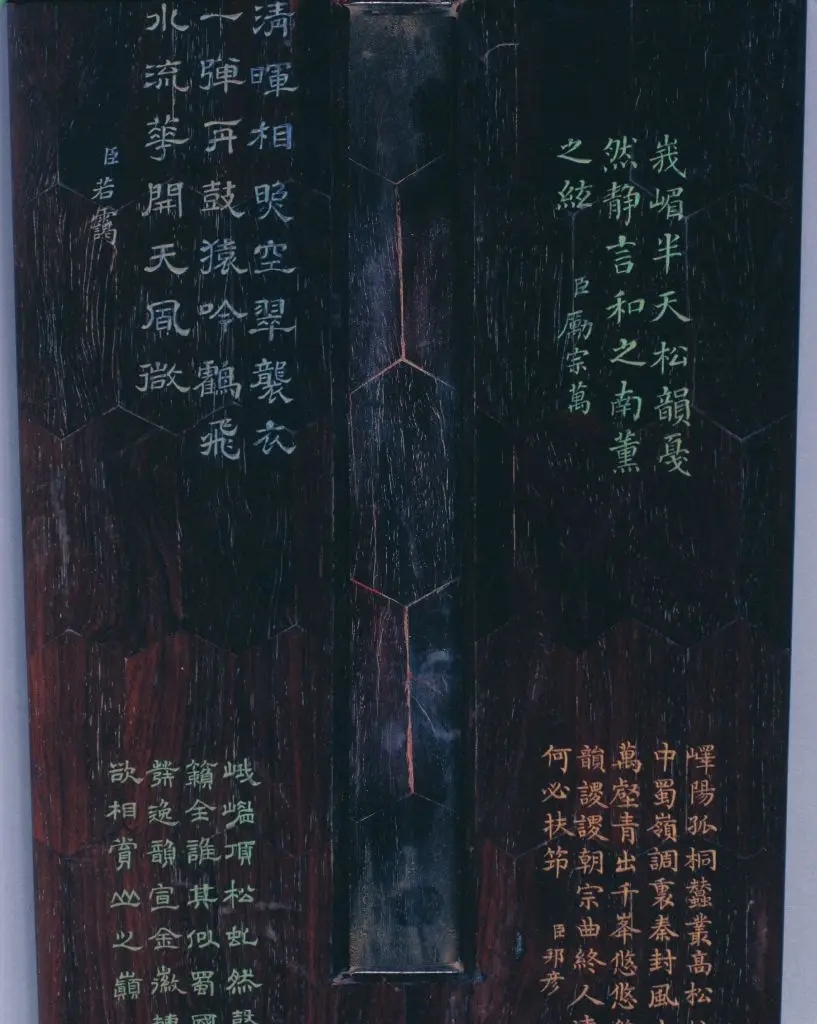 峩嵋半天松韻戛
然静言和之南薰
之絃
臣勵宗萬
清暉相映空翠襲衣
一弾再鼓猿吟鶴飛
水流華開天風微
臣若靄
嶧陽孤桐蠶叢高松
中蜀嶺調裏秦封風
萬壑青出千峯悠悠
韻謖謖朝宗曲終人
何必扶筇
臣邦彦
峨嵫頂松虬然
籟全誰其似蜀國
發逸韻宣金徽
欲相賞山之巔